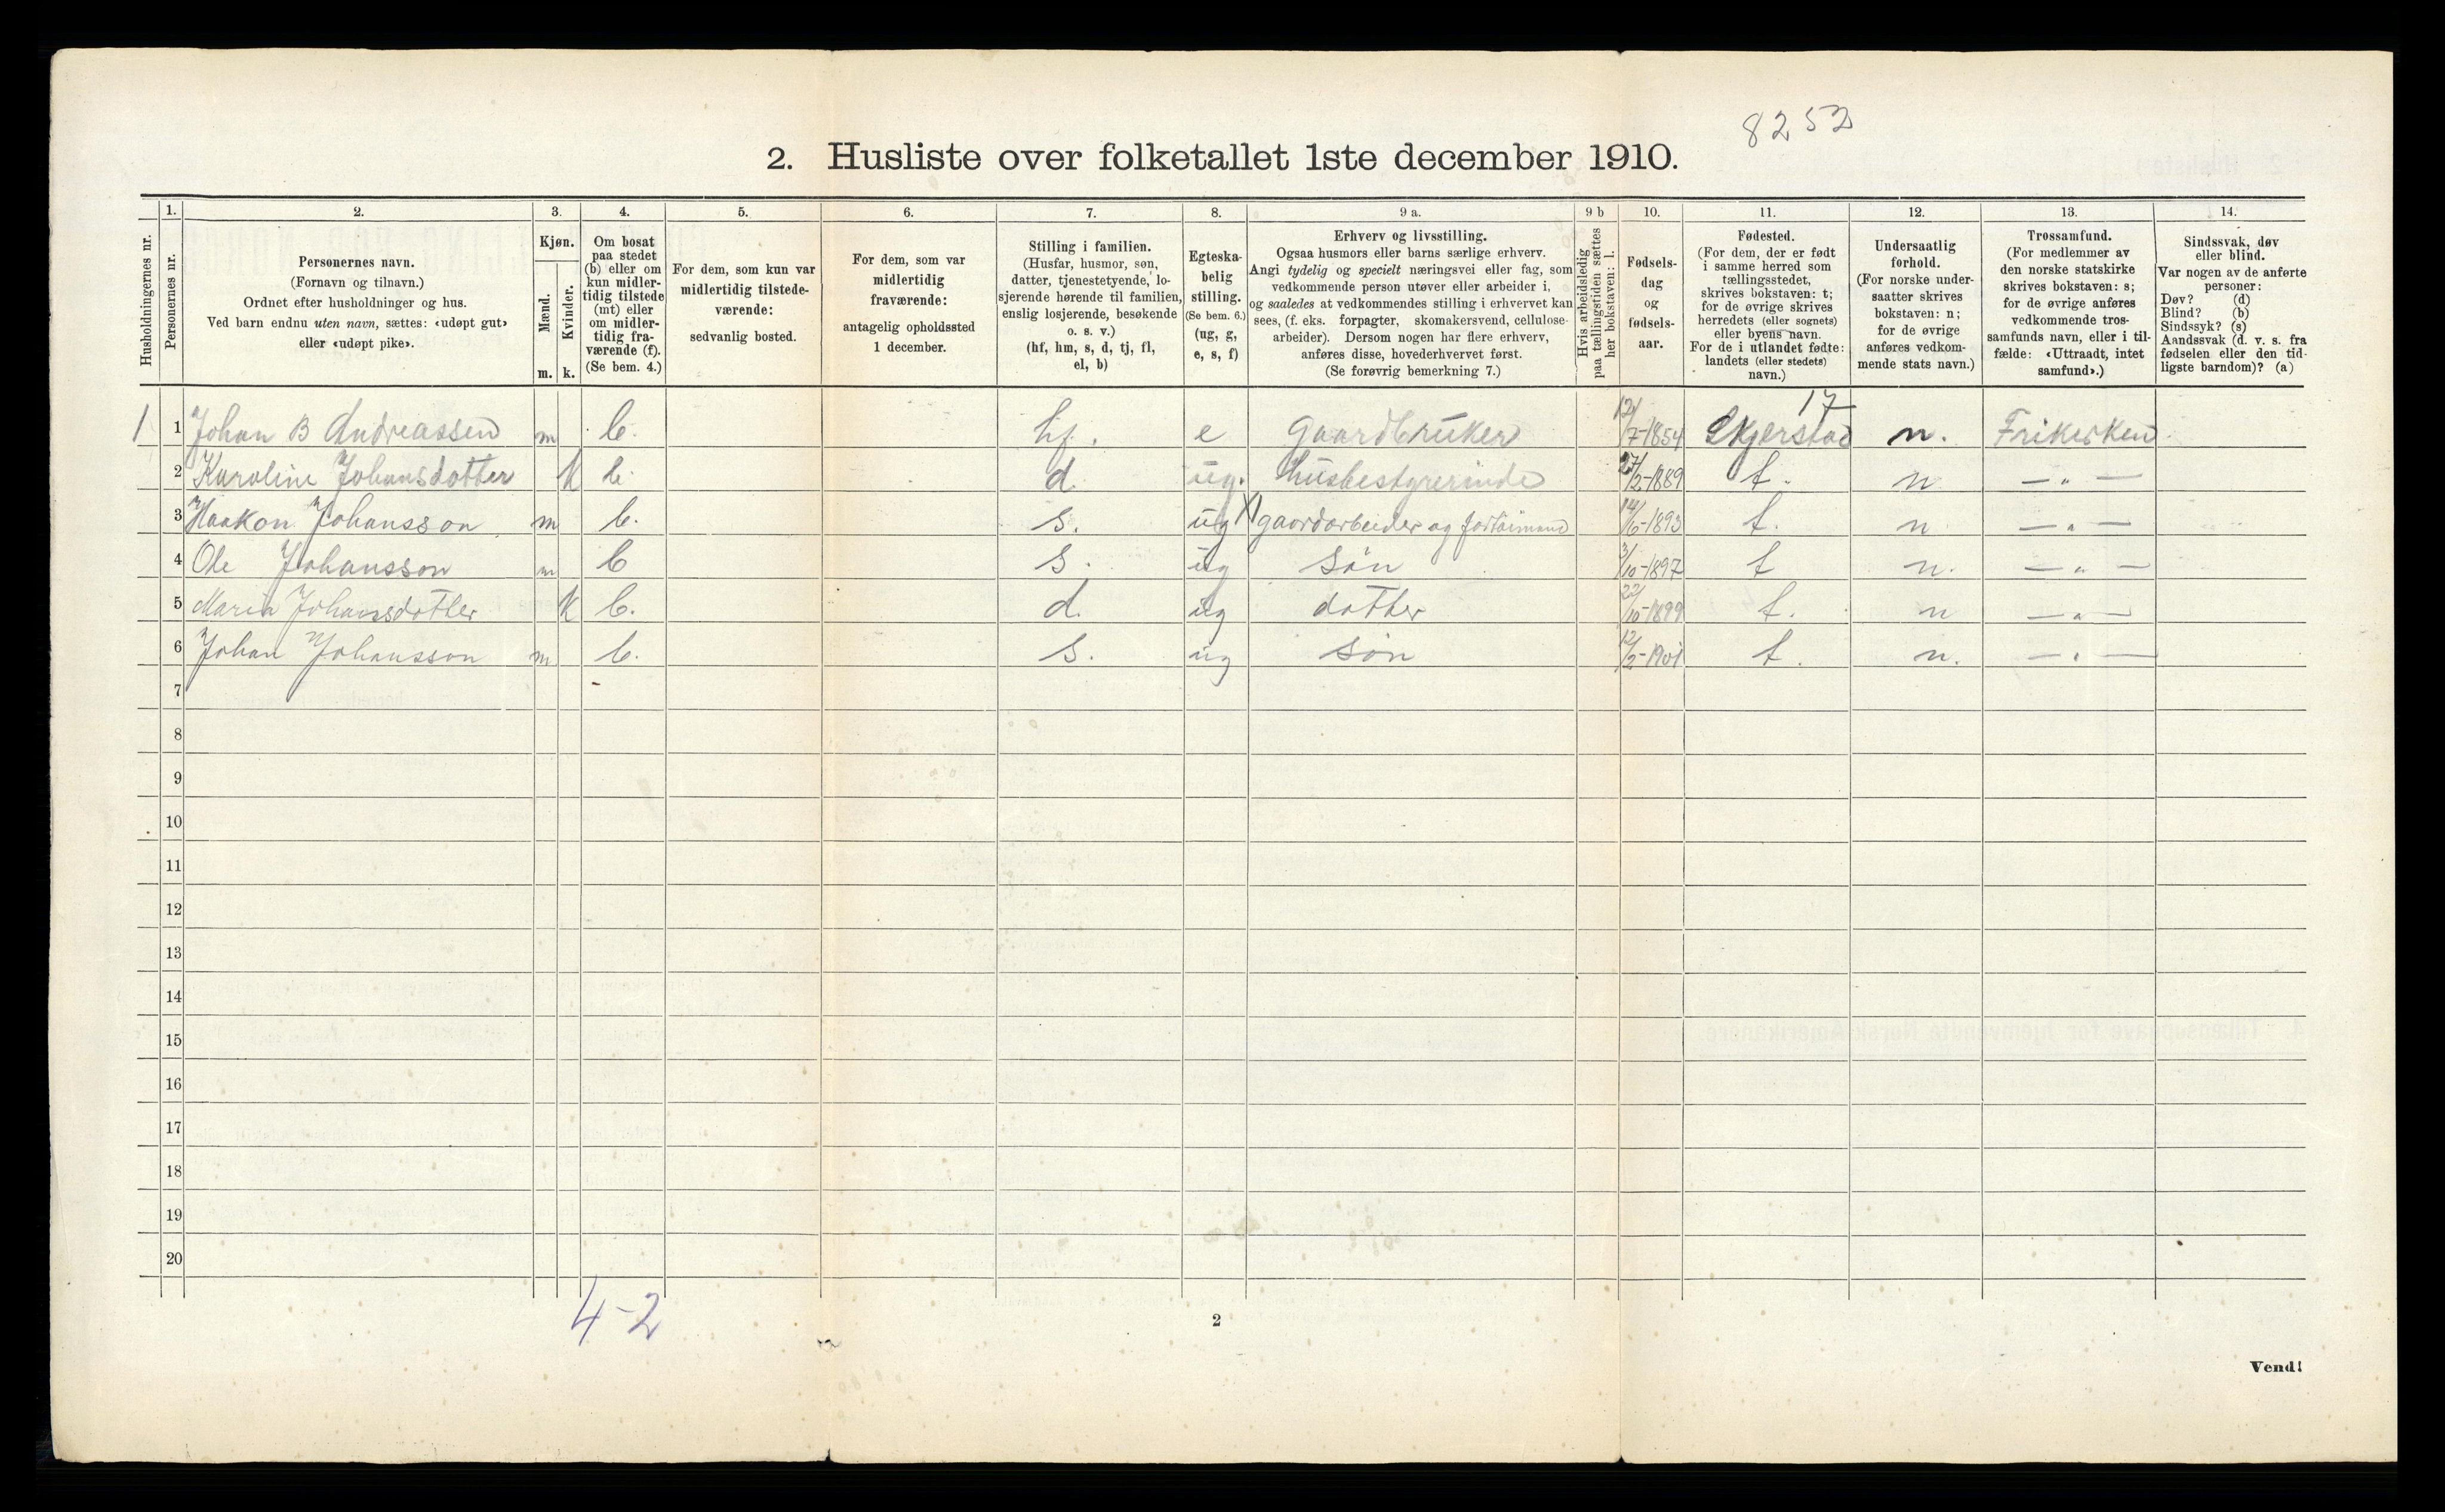 8252
2. Husliste over folketallet 1ste december 1910.
Husholdningernes nr.
1.
Personernes nr.
2.
Personernes navn.
(Fornavn og tilnavn.)
Ordnet efter husholdninger og hus.
Ved barn endnu uten navn, sættes: «udøpt gut»
eller «udøpt pike».
3.
Kjøn.
Mænd.
Kvinder.
m. k.
4.
Om bosat
paa stedet
(b) eller om
kun midler-
tidig tilstede
(mt) eller
om midler-
tidig fra-
værende (f).
(Se bem. 4.)
5.
For dem, som kun var
midlertidig tilstede-
værende:
sedvanlig bosted.
6.
For dem, som var
midlertidig
fraværende:
antagelig opholdssted
1 december.
7.
Stilling i familien.
(Husfar, husmor, søn,
datter, tjenestetyende, lo-
sjerende hørende til familien,
enslig losjerende, besøkende
o. s. v.)
(hf, hm, s, d, tj, fl,
el, b)
8.
Egteska-
belig
stilling.
(Se bem. 6.)
(ug, g,
e, s, f)
9 a.
Erhverv og livsstilling.
Ogsaa husmors eller barns særlige erhverv.
Angi tydelig og specielt næringsvei eller fag, som
vedkommende person utøver eller arbeider i,
og saaledes at vedkommendes stilling i erhvervet kan
sees, (f. eks. forpagter, skomakersvend, cellulose-
arbeider). Dersom nogen har flere erhverv,
anføres disse, hovederhvervet først.
(Se forøvrig bemerkning 7.)
9 b
Hvis arbeidsledig
paa tællingstiden sættes
her bokstaven: l.
10.
Fødsels-
dag
og
fødsels-
aar.
11.
Fødested.
(For dem, der er født
i samme herred som
tællingsstedet,
skrives bokstaven: t;
for de øvrige skrives
herredets (eller sognets)
eller byens navn.
For de i utlandet fødte:
landets (eller stedets)
navn.)
12.
Undersaatlig
forhold.
(For norske under-
saatter skrives
bokstaven: n;
for de øvrige
anføres vedkom-
mende stats navn.)
13.
Trossamfund.
(For medlemmer av
den norske statskirke
skrives bokstaven: s;
for de øvrige anføres
vedkommende tros-
samfunds navn, eller i til-
fælde: «Uttraadt, intet
samfund».)
14.
Sindssvak, døv
eller blind.
Var nogen av de anførte
personer:
Døv? (d)
Blind? (b)
Sindssyk? (s)
Aandssvak (d. v. s. fra
fødselen eller den tid-
ligste barndom)? (a)
17
1 1 Johan B Andreassen m b. hf. e Gaardbruker 12/7-1854 Skjerstad n. Frikerken
2 Karoline Johansdotter k b. d. ug. husbestyrerinde 27/2-1889 t. n — „ —
3 Haakon Johansson m b. s. ug X gaardarbeider og 14/6-1893 t. n — „ —
4 Ole Johansson m b s. ug søn 3/10-1897 t n. — „ —
5 Maria Johansdotter k b. d. ug dotter 22/10-1899 t. n — „ —
6 Johan Johansson m b. s. ug søn 12/2-1901 t. n. — „ —
7
8
9
10
11
12
13
14
15
16
17
18
19
20
4-2
2
Vend!